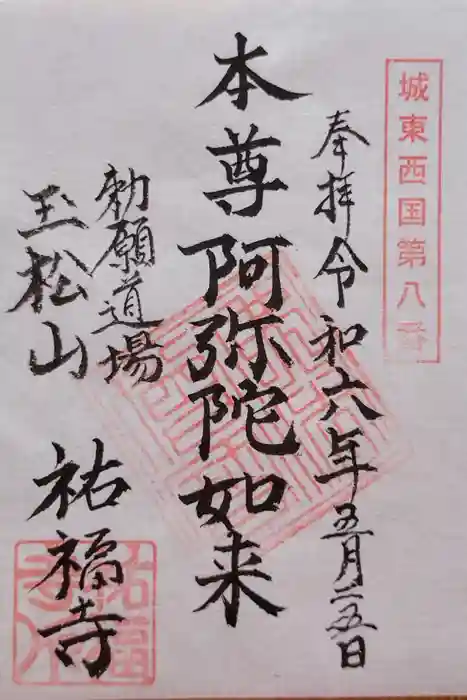 城東西国第八番
奉拝令和六年五月二五日
本尊阿弥陀如来
勅願道場
玉松山
祐福寺